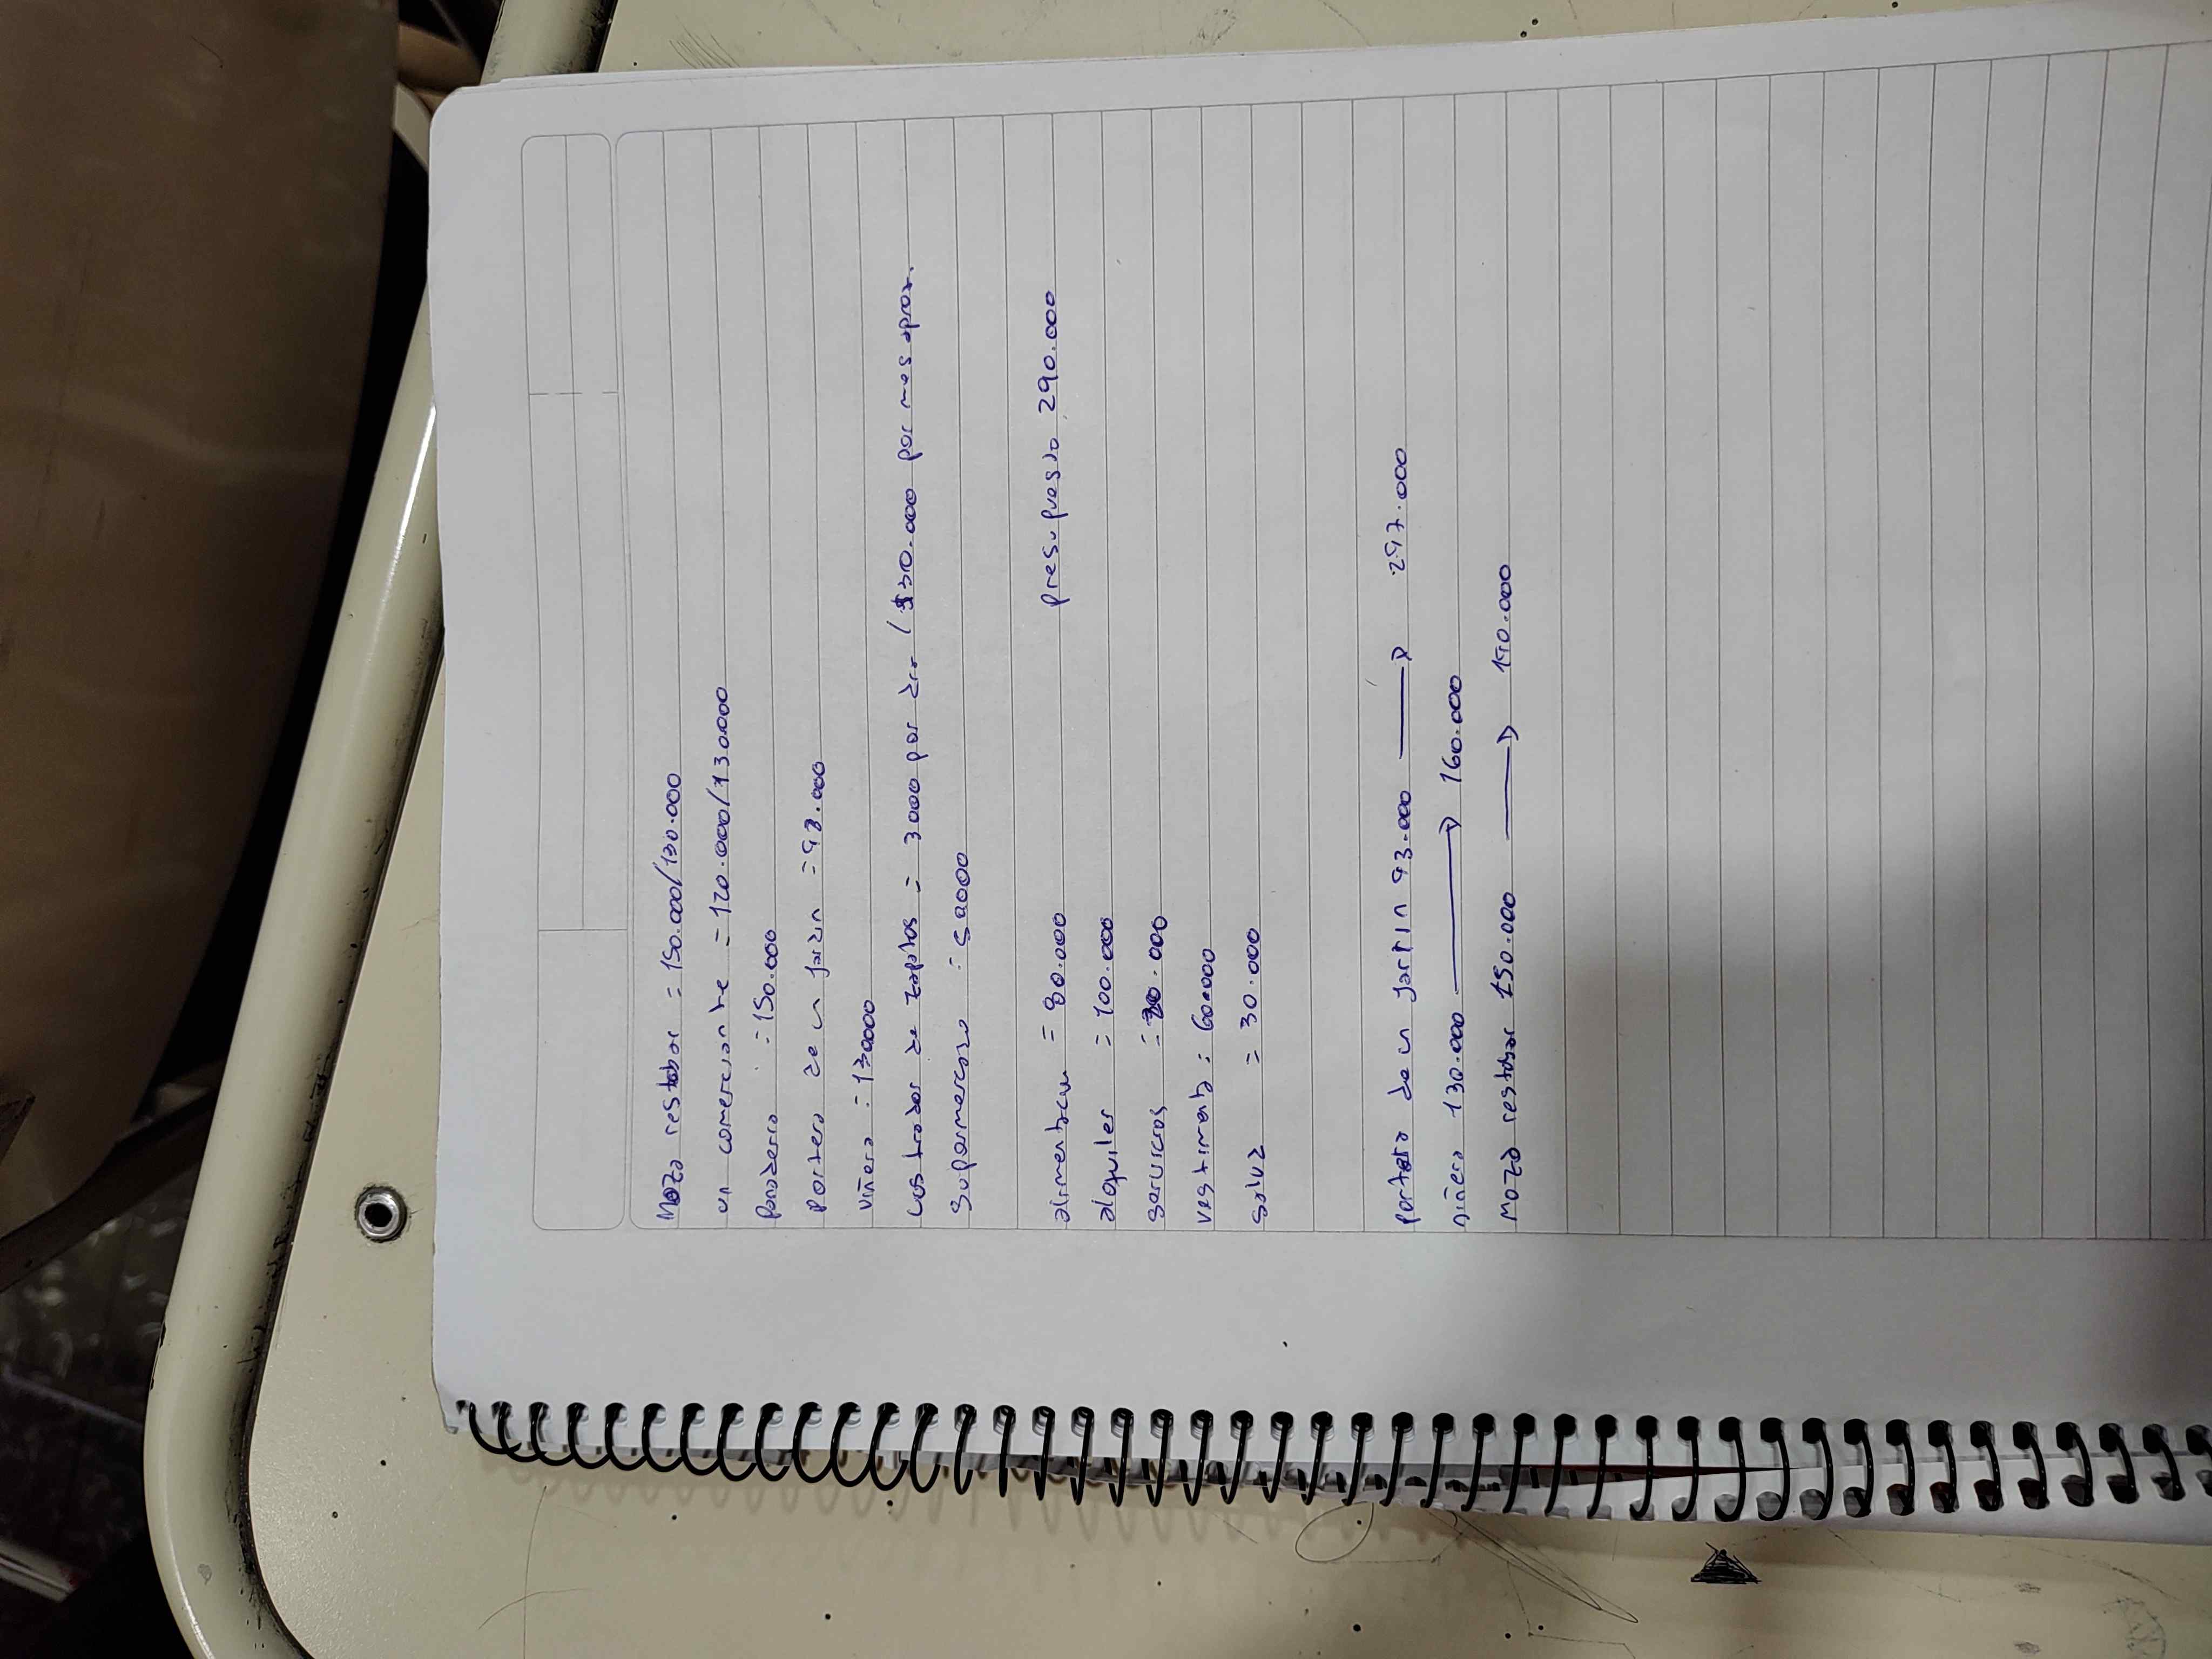 Moza restobar = 150.000/130.000
un comerciante = 120.000/130.000
Panadero = 150.000
Portero de un jardin = 93.000
niñera = 130000
Lustrador de zapatos = 3000 por dia ($30.000 por mes aprox.
Supermercado =
alimentacion = 80.000 presupuesto 290.000
alquiler = 100.000
servicios = 20.000
vestimenta = 60.000
salud = 30.000
portero de un jardin 93.000 → 297.000
niñera 130.000 → 160.000
moza restobar 150.000 → 140.000